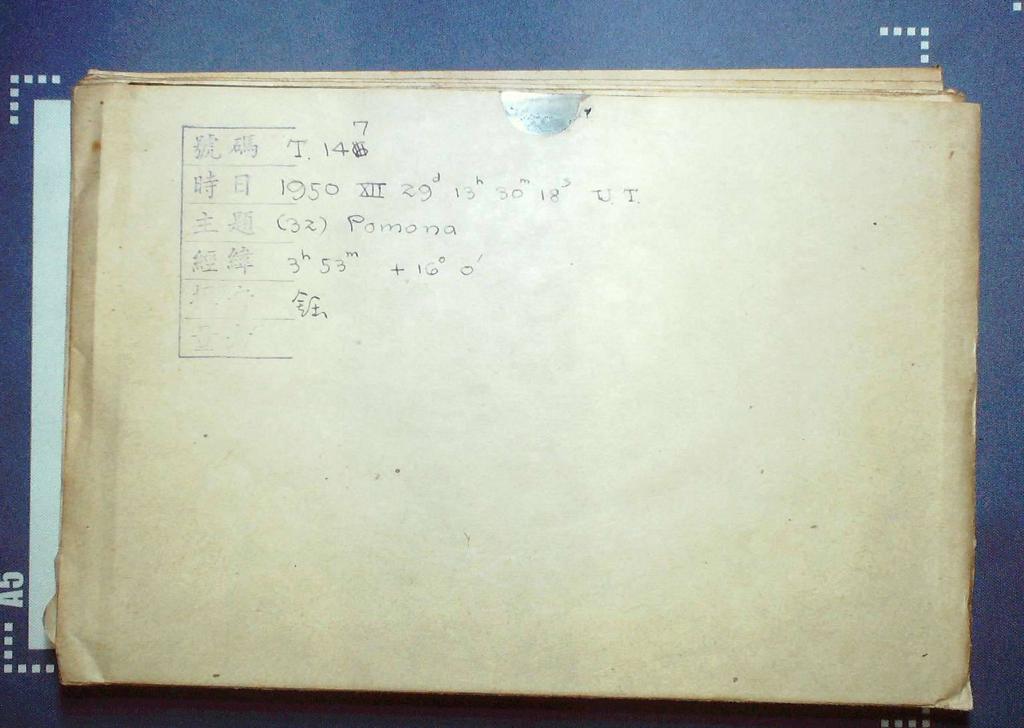 號碼 T. 147
時日 1950 XII 29d 13h 30m 18s U.T.
主題 (32) Pomona
經緯 3h 53m + 16° 0′
鈺
A5